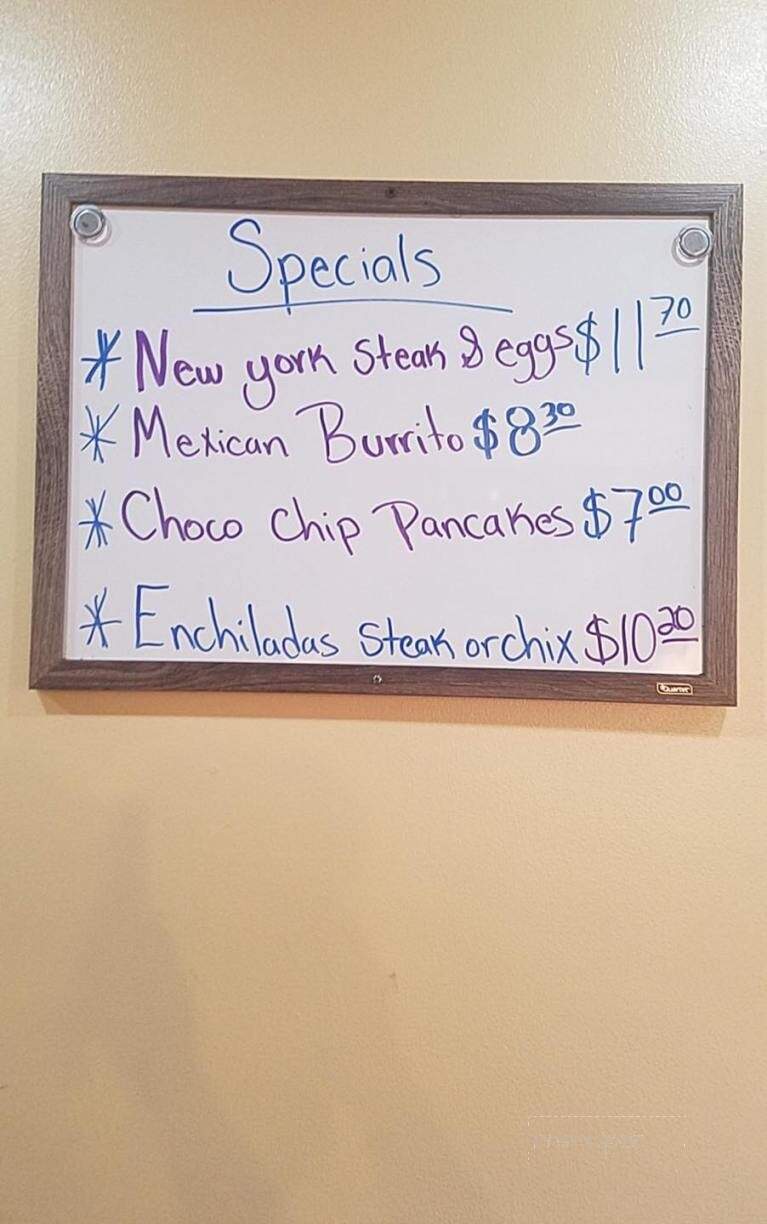 Specials
* New york Steak & eggs $11 70
* Mexican Burrito $8 30
* Choco Chip Pancakes $7 00
* Enchiladas Steak or chix $10 20
Quartet